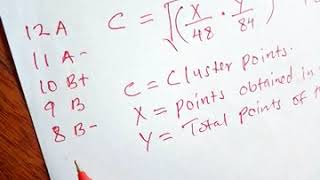 12 A
11 A-
10 B+
9 B
8 B-
C = √(X/48 · Y/84)
C = Cluster points.
X = points obtained in
Y = Total points of